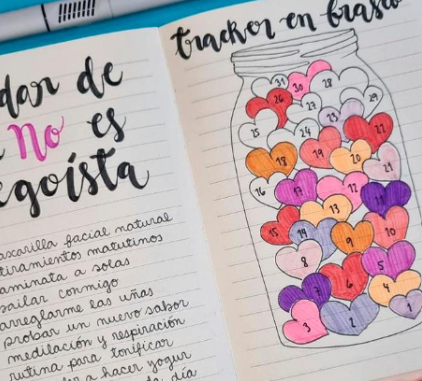 dar de
No es
egoísta
ascarilla facial natural
tiramientos matutinos
aminata a solas
bailar conmigo
arreglarme las uñas
probar un nuevo sabor
medilación y respiración
rutina para tonificar
a hacer yogur
día
tracker en frasco
31 30
26 27 29
23
25 24 22
19
18 20 21
16 17 12 11
13
15 14 9 10
8 5
7 6 4
3 2 1